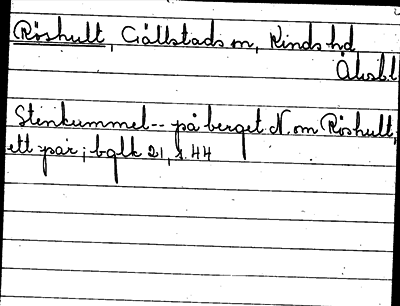 Röshult, Gällstads sn, Kinds hd
Älvsbl
Stenkummel-- på berget N. om Röshult,
ett par; bglk 21, s. 44